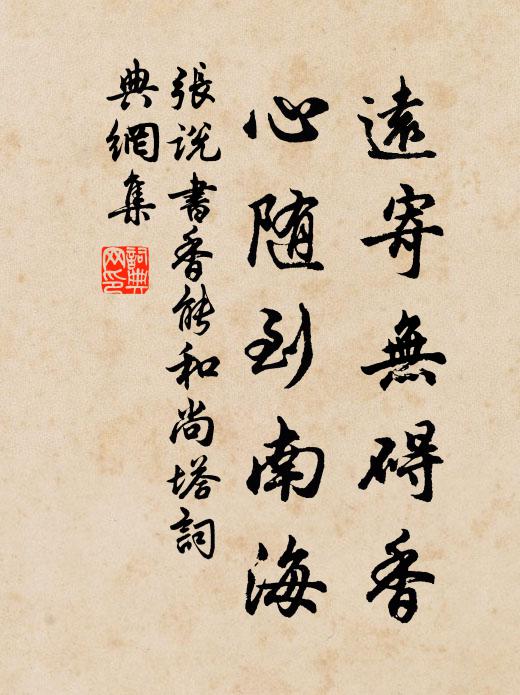 遠寄無碍香
心随到南海
張說書香能和尚塔詞
典網集
詞典网印